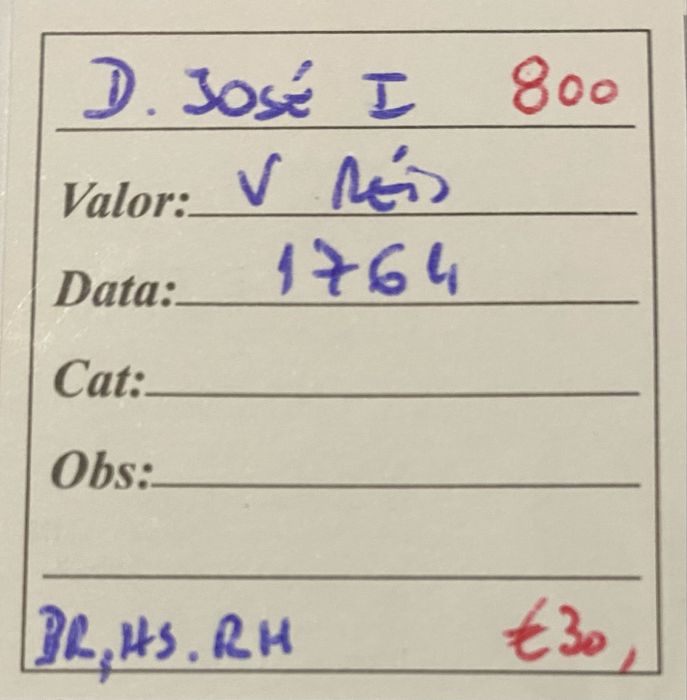 D. José I 800
Valor: V Réis
Data: 1764
Cat:
Obs:
BR, HS. RH €30,